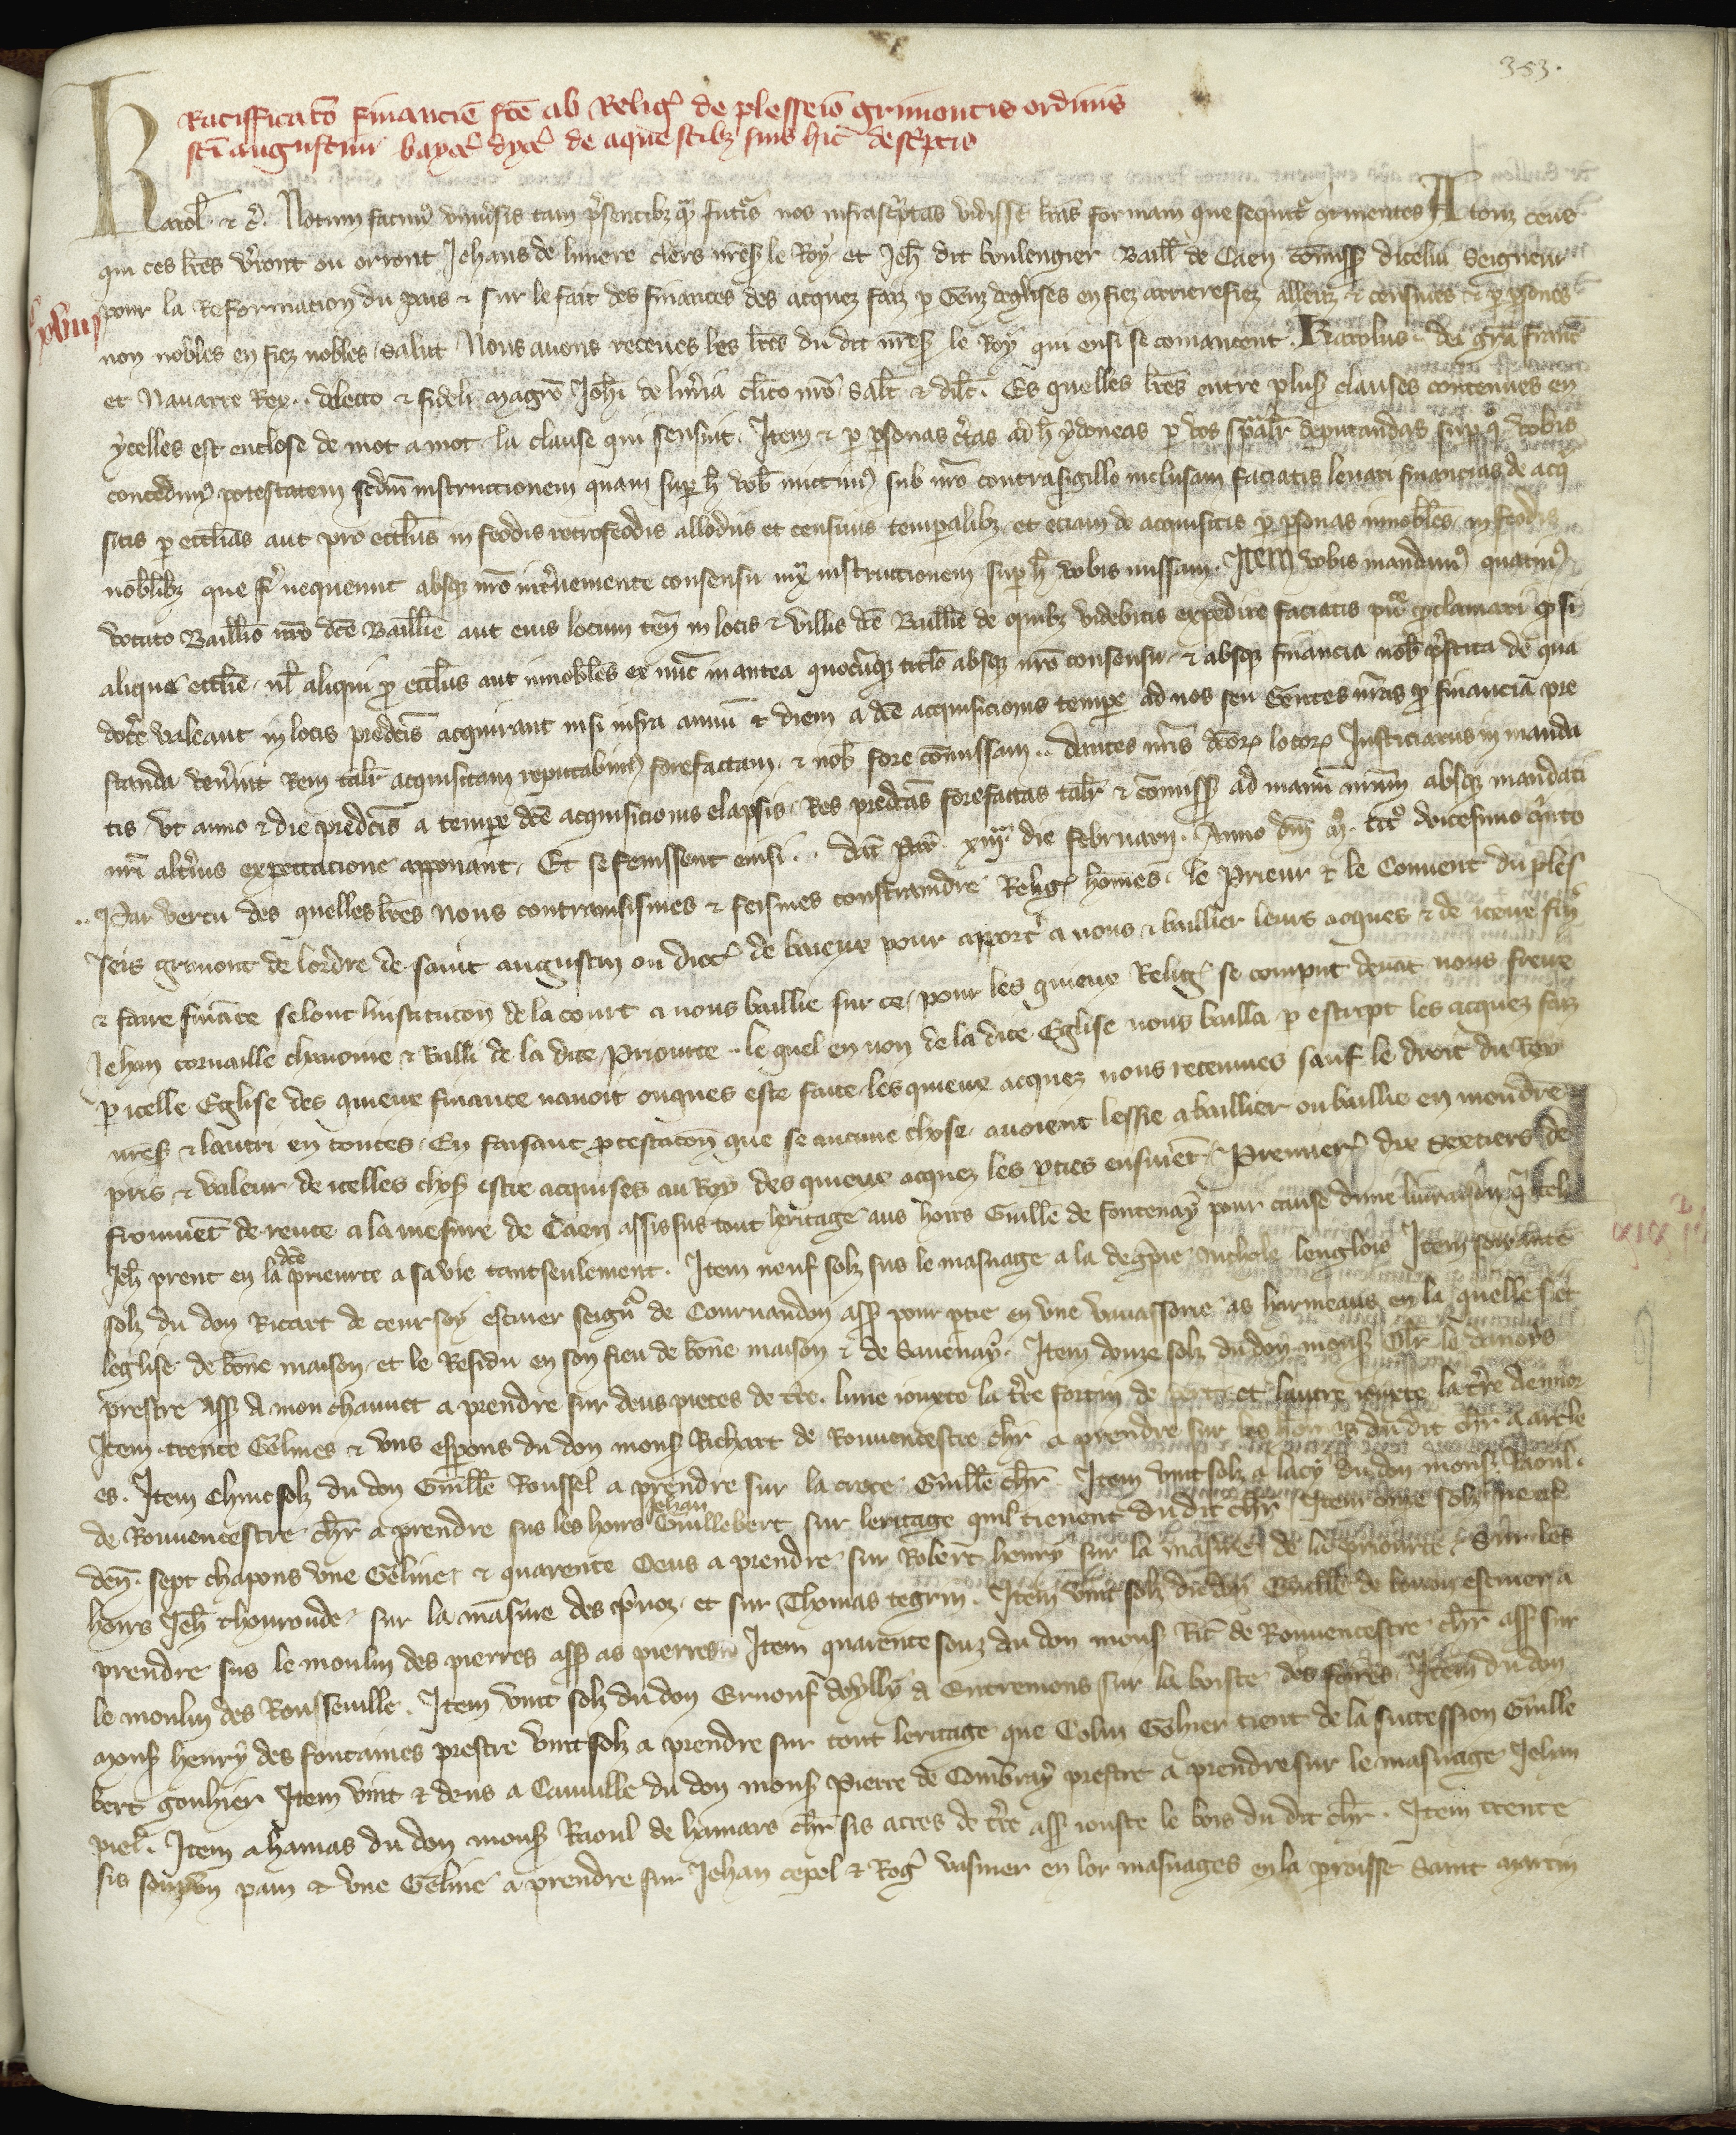 353.
Ratifficatō financiē fcē ab Religꝰ de plesseio grimoutis ordinis
scī augustini bayoc̄ dyoc̄ de aquestibꝫ suis hic descͥptis
Karol̄ & c̄. Notum facimꝰ vniuͥsis tam pͥsentibꝫ qͣꝫ futͥis nos infrascͥptas vidisse lr̄as formam que sequitͥ ꝯtinentes A touz ceus
qui ces lr̄es vͥront ou orront Jehans de liniere clers nr̄eſ le Roy et Jeh̄ dit boulengier Baill̄ de Caen cōmisſ dicelui Seigneur
pour la Reformacion du pais & sur le fait des finances des acquez faiz ꝑ Genz deglises en fiez arrierefiez alleuz & censiues & ꝑ ꝑsones
non nobles en fiez nobles, Salut Nous auons receues les lr̄es du dit nr̄eſ le Roy qui ensi se comancent. Karolus dei grā franc̄
et Nauarre Rex .. dilecto & fideli magr̄o Joh̄i de lin̄ia clīco nr̄o Salt̄ & dilc̄. Es quelles lr̄es entre plusſ clauses contenues en
ycelles est enclose de mot a mot la clause qui sensuit. Item & ꝑ ꝑsonas cͥtas ad h̄ ydoneas ꝑ vos spāliͥ deputandas suꝑ qͦ vobis
concedimꝰ potestatem scdm̄ instruccionem quam suꝑ h̄ vob̄ mittimꝰ sub nr̄o contrasigillo inclusam faciatis leuari financias de acqͥ
sitis ꝑ eccl̄ias aut pro eccl̄iis in feodis retrofeodis allodiis et censiuis temꝑalibꝫ et eciam de acquisitis ꝑ ꝑsonas innobiles in feodis
nobilibꝫ que fͥi nequeunt absqꝫ nr̄o intͥueniente consensu iuxͣ instruccionem suꝑ h̄ vobis missam. Item vobis mandamꝰ quatinꝰ
vocato Bailliuo nr̄o dc̄e Baillie aut eius locum ten̄ in locis & villis dc̄e Baillie de quibꝫ videbitis expedire faciatis puͣ ꝓclamari ꝙ si
alique eccl̄ie, ul̄ aliqui ꝓ eccl̄iis aut innobiles ex nūc in antea quocūqꝫ titl̄o absqꝫ nr̄o consensu & absqꝫ financia nob̄ pͥstita de qua
docͥe valeant in locis predc̄is acquirant nisi infra annū & diem a dc̄e acquisicionis temꝑe ad nos seu Gentes nr̄as ꝓ financiā pre
standa venͥint Rem talr̄ acquisitam reputabimꝰ forefactam & nob̄ fore cōmissam .. dantes nr̄is dc̄oꝝ locoꝝ Justiciariis in manda
tis, vt anno & die predc̄is a temꝑe dc̄e acquisicionis elapsis, Res predc̄as forefactas talr̄ & cōmisſ ad manū nr̄am absqꝫ mandati
nr̄i altͥius expectacione apponant. Et se fenissent ensi .. dat̄ par̄ xiiijͣ die februarii. Anno dn̄i Mͦ. ccͨͦ vicesimo qͥnto
.. Par vertu des quelles lr̄es Nous contrainsismes & feismes constraindre Religꝰ homes. le Prieur & le Conuent du ples
seis grimout de lordre de saint augustin ou dioc̄ de baieux pour apportͥ a nous & baillier leurs acques & de iceux fin̄
& faire finance selonc linstitucōn de la court a nous baillie sur ce, pour les quieux Religꝰ se comput deuāt nous freux
Jehan cornaille chanoine & Balli de la dite Priourte. le quel en non de la dite Eglise nous bailla ꝑ escript les acquez faiz
ꝑ icelle Eglise des quieux finance nauoit onques este faite, les quieux acquez nous receumes sauf le droit du Roy
nr̄eſ & lautri en toutes, En faisant ꝓtestacōn que se aucune chose auoient lessie a baillier ou baillie en mendre
pris & valeur, de icelles choſ estre acquises au Roy des quieux acquez les ꝑties ensuiēt. Premierͥ dix Sextiers de
fromēt de rente a la mesure de Caen assis sus tout heritage aus hoirs Guille de fontenay pour cause dune liuraison qͥ icels
Jeh̄ prent en la dc̄e prieurte a sa vie tantseulement. Item neuf solz sus le masnage a la degͥpie Nichole lenglois Item soixante
solz du don Ricart de ceursoy escuier seignͬ de Cournaudon assſ pour ꝑtie en vne vauassorie as harmeaus en la quelle siet
leglise de bōne maison, et le Residu en son fieu de bōne maison & de Sauenay. Item douze solz du don monſ Oliͥ le danois
prestre assſ a mon chauuet a prendre sur deus pieces de tͥre. lune iouxte la tͥre fortin de et lautre iouxte la tͥre
Item trente Gelines & vns espons du don monſ Richart de Rouuencestre chr̄ a prendre sur les hoirs du dit chr̄ a arcle
es. Item Chinc solz du don Guille Roussel a prendre sur la crote Guille chr̄. Item vint solz a lacy du don monſ Raoul
de Rouuencestre chr̄ a prendre sus les hoirs Jehan Guillebert sur leritage quil tienent du dit chr̄. Item onze solz neuf
den̄. sept chapons vne Geline & quarente Oeus a prendre sur Robert henry sur la masure de la priourte Sur les
hoirs Jeh̄ thouroude, sur la masure des pͥuoz, et sur Thomas tegrin. Item vint solz du don Guille de bouon escuier a
prendre sus le moulin des pierres assſ as pierres. Item quarente souz du don monſ Ric̄ de Rouuencestre chr̄ assſ sur
le moulin des Rousseuille. Item vint solz du don Ernouf doylly a Entremons sur la boiste des foires Item du don
Monſ henry des fontaines prestre vint solz a prendre sur tout leritage que Colin Gohier tient de la succession Guille
bert gouhier Item vint & deus a Cauuille du don monſ Pierre de Combray prestre a prendre sur le masnage Jehan
piel. Item a hamas du don monſ Raoul de hamars chr̄ sis acres de tͥre assſ iouste le bois du dit chr̄. Item trente
sis souz vn pain & vne Geline a prendre sur Jehan cepel & Rogͥ vasnier en lor masnages en la ꝑroisse Saint martin